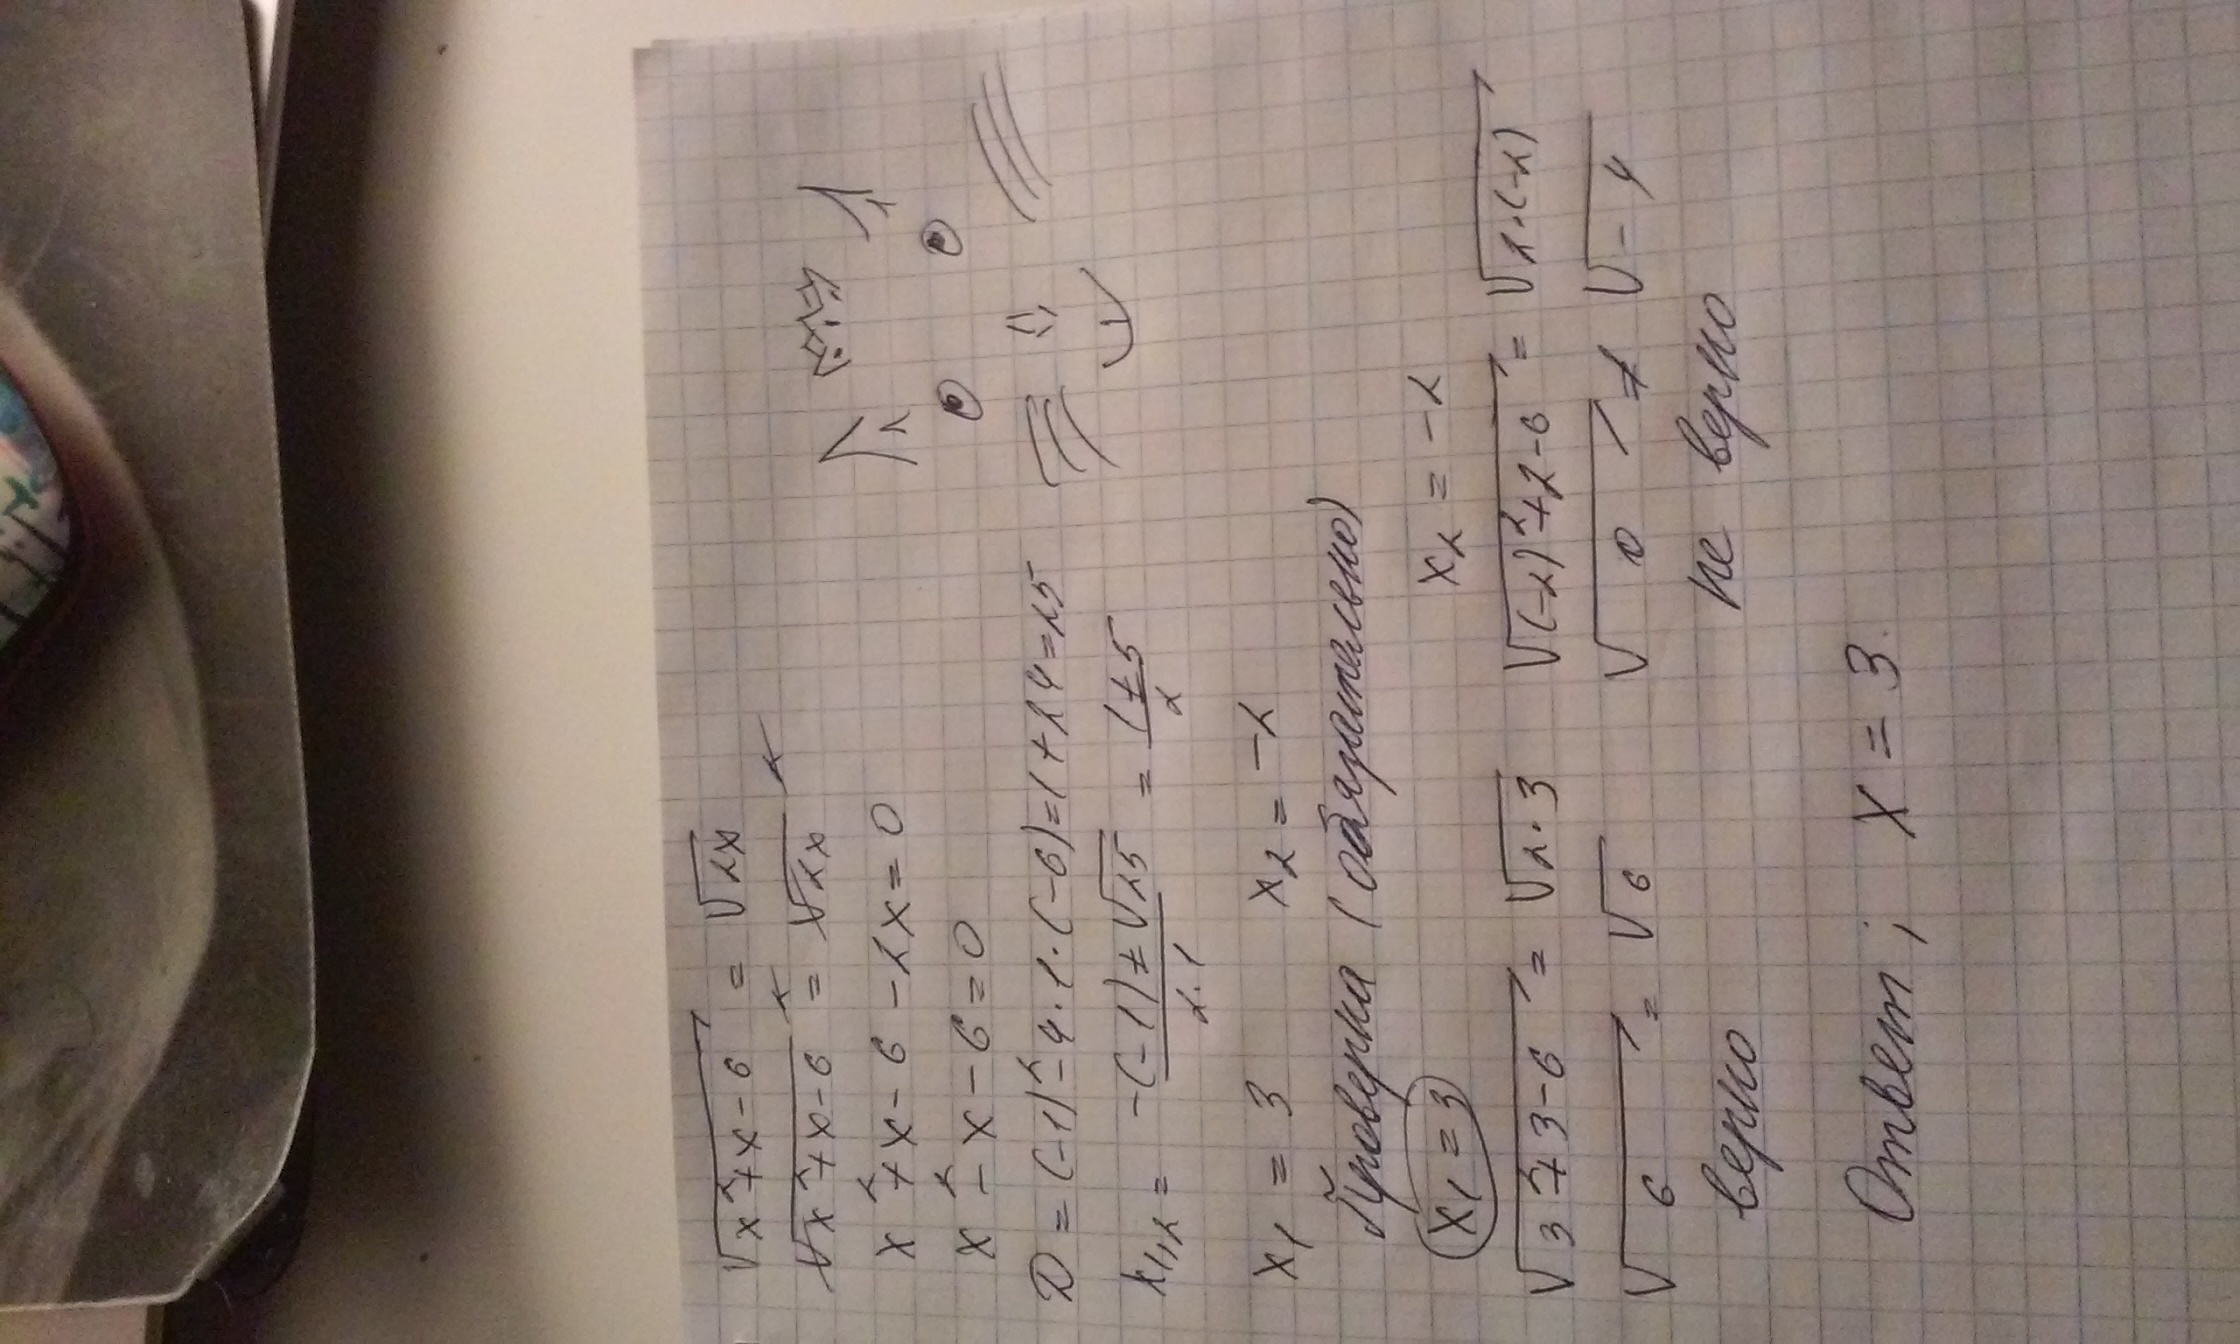 √(x²+x-6) = √(2x)
√(x²+x-6)² = √(2x)²
x²+x-6-2x=0
x²-x-6=0
D=(-1)²-4·1·(-6)=1+24=25
x₁,₂ = (-(-1)±√25)/(2·1) = (1±5)/2
x₁ = 3 x₂ = -2
Проверка (обязательно)
x₁=3 x₂ = -2
√(3²+3-6) = √(2·3) √((-2)²+2-6) = √(2·(-2))
√6 = √6 √0 ≠ √-4
верно не верно
Ответ; x = 3.